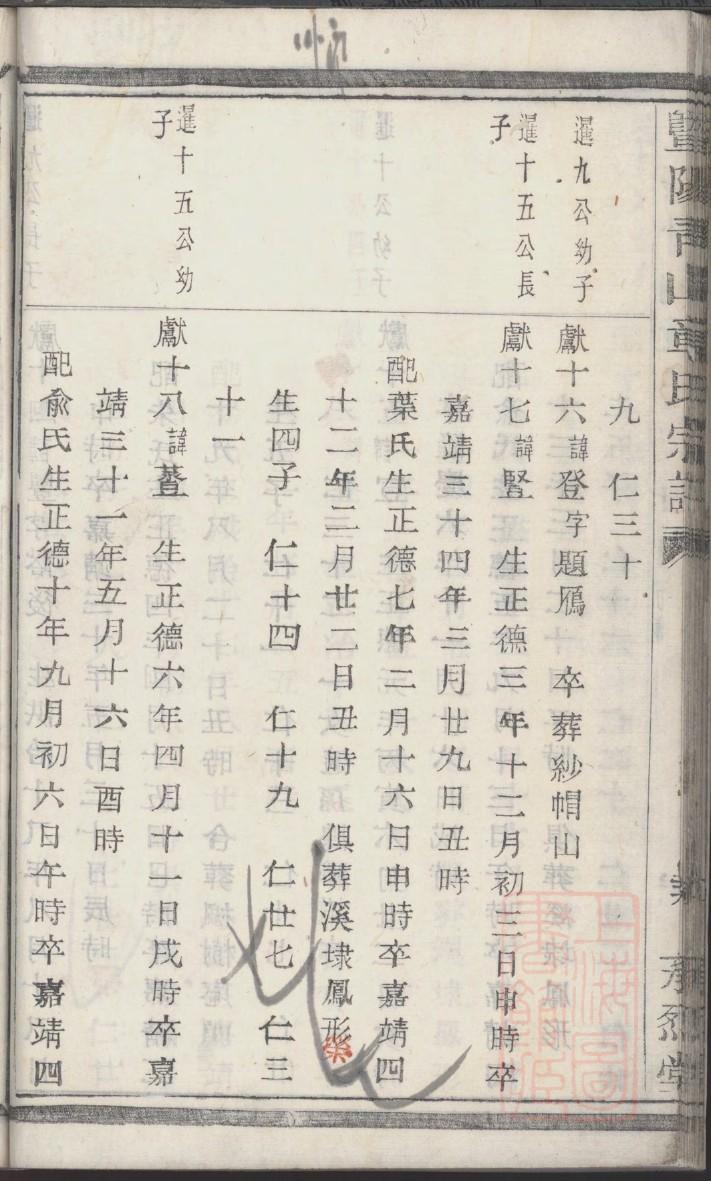 暨陽青山章氏宗譜
九 仁三十
暹九公幼子
獻十六諱登字題鴈 卒葬紗帽山
暹十五公長
子
獻十七諱竪 生正德三年十二月初三日申時卒
嘉靖三十四年三月廿九日丑時
配葉氏生正德七年二月十六日申時卒嘉靖四
十二年二月廿二日丑時 俱葬溪埭鳳形
生四子 仁十四 仁十九 仁廿七 仁三
十一
暹十五公幼
子
獻十八諱 生正德六年四月十一日戌時卒嘉
靖三十一年五月十六日酉時
配俞氏生正德十年九月初六日午時卒嘉靖四